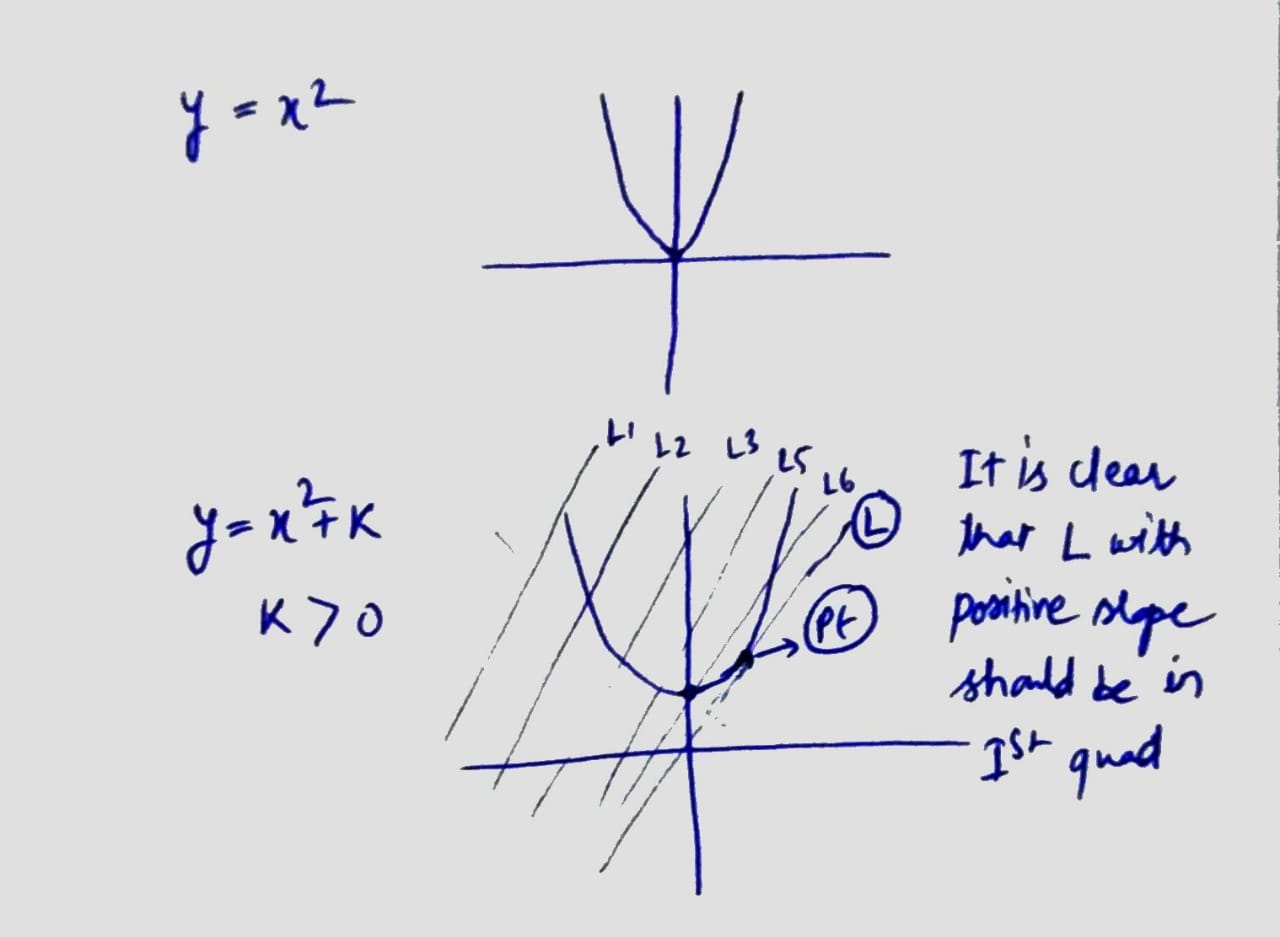 y = x²
L1
L2
L3
L5
L6
L
y = x² + K
K > 0
Pt
It is clear
that L with
positive slope
should be in
Ist quad